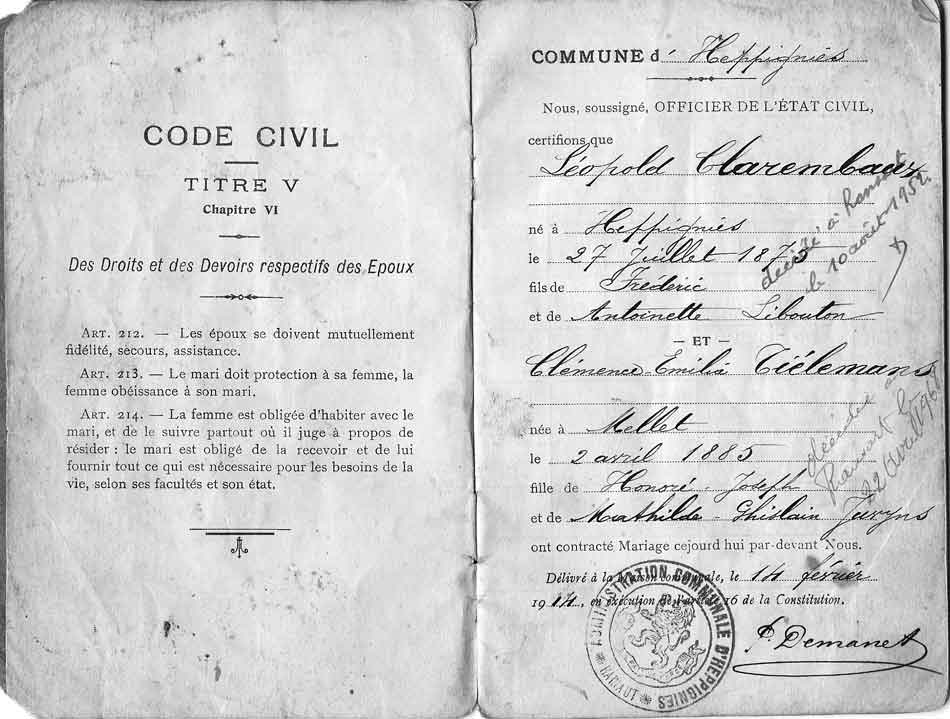 CODE CIVIL
TITRE V
Chapitre VI
Des Droits et des Devoirs respectifs des Epoux
ART. 212. — Les époux se doivent mutuellement
fidélité, secours, assistance.
ART. 213. — Le mari doit protection à sa femme, la
femme obéissance à son mari.
ART. 214. — La femme est obligée d'habiter avec le
mari, et de le suivre partout où il juge à propos de
résider : le mari est obligé de la recevoir et de lui
fournir tout ce qui est nécessaire pour les besoins de
la vie, selon ses facultés et son état.
COMMUNE d' Heppignies
Nous, soussigné, OFFICIER DE L'ÉTAT CIVIL,
certifions que
Léopold Clarembaux
né à Heppignies
le 27 Juillet 1875
décédé à Ransart
le 10 août 1952
fils de Frédéric
et de Antoinette Libouton
— ET —
Clémence-Emilie Tiélemans
née à Mellet
le 2 avril 1885
décédée à
Ransart le
22 Avril
fille de Honoré-Joseph
et de Mathilde-Ghislain
ont contracté Mariage cejourd'hui par-devant Nous.
Délivré à la Maison communale, le 14 février
1914, en exécution de l'article 16 de la Constitution.
ADMINISTRATION COMMUNALE D'HEPPIGNIES
HAINAUT
Demanet